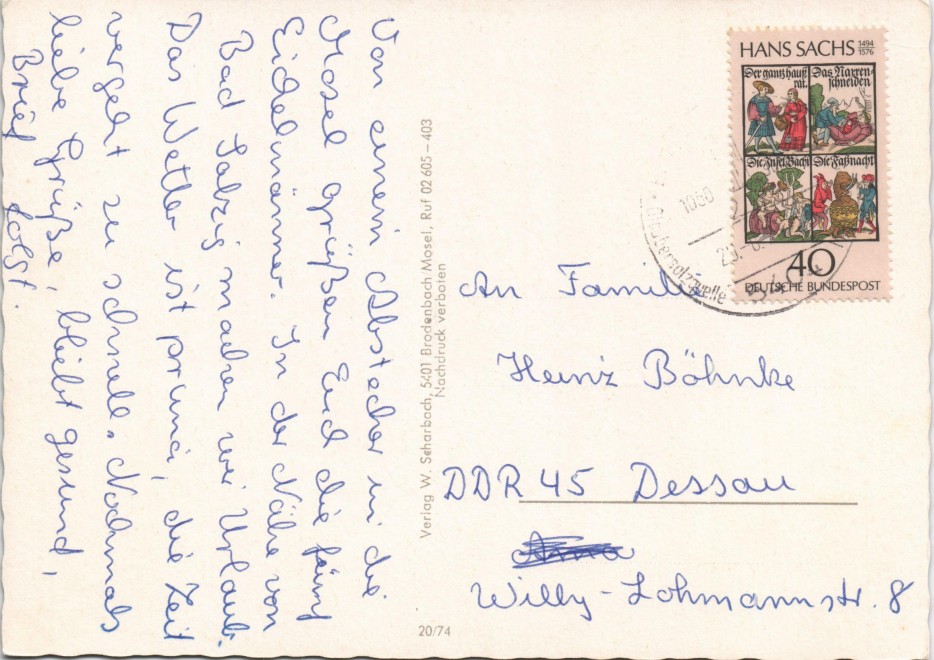 Von einem Abstecher in die
Mosel grüßen Euch die fünf
Eidelmänner. In der Nähe von
Bad Salzig machen wir Urlaub.
Das Wetter ist prima, die Zeit
vergeht zu schnell. Nochmals
liebe Grüße, bleibt gesund,
Brief folgt.
Verlag W. Scharbach, 5401 Brodenbach Mosel, Ruf 02 605 – 403
Nachdruck verboten
20/74
HANS SACHS 1494 1576
Der gantz haußrat.
Das Narrenschneiden
Die Insel Bachi
Die Faßnacht
40
DEUTSCHE BUNDESPOST
An Familie
Heinz Böhnke
DDR 45 Dessau
Willy-Lohmannstr. 8